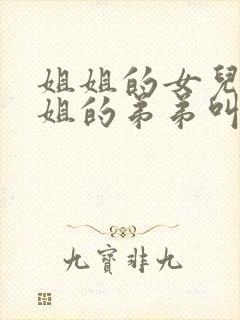 姐姐的女兒
姐的弟弟叫
九寶非九